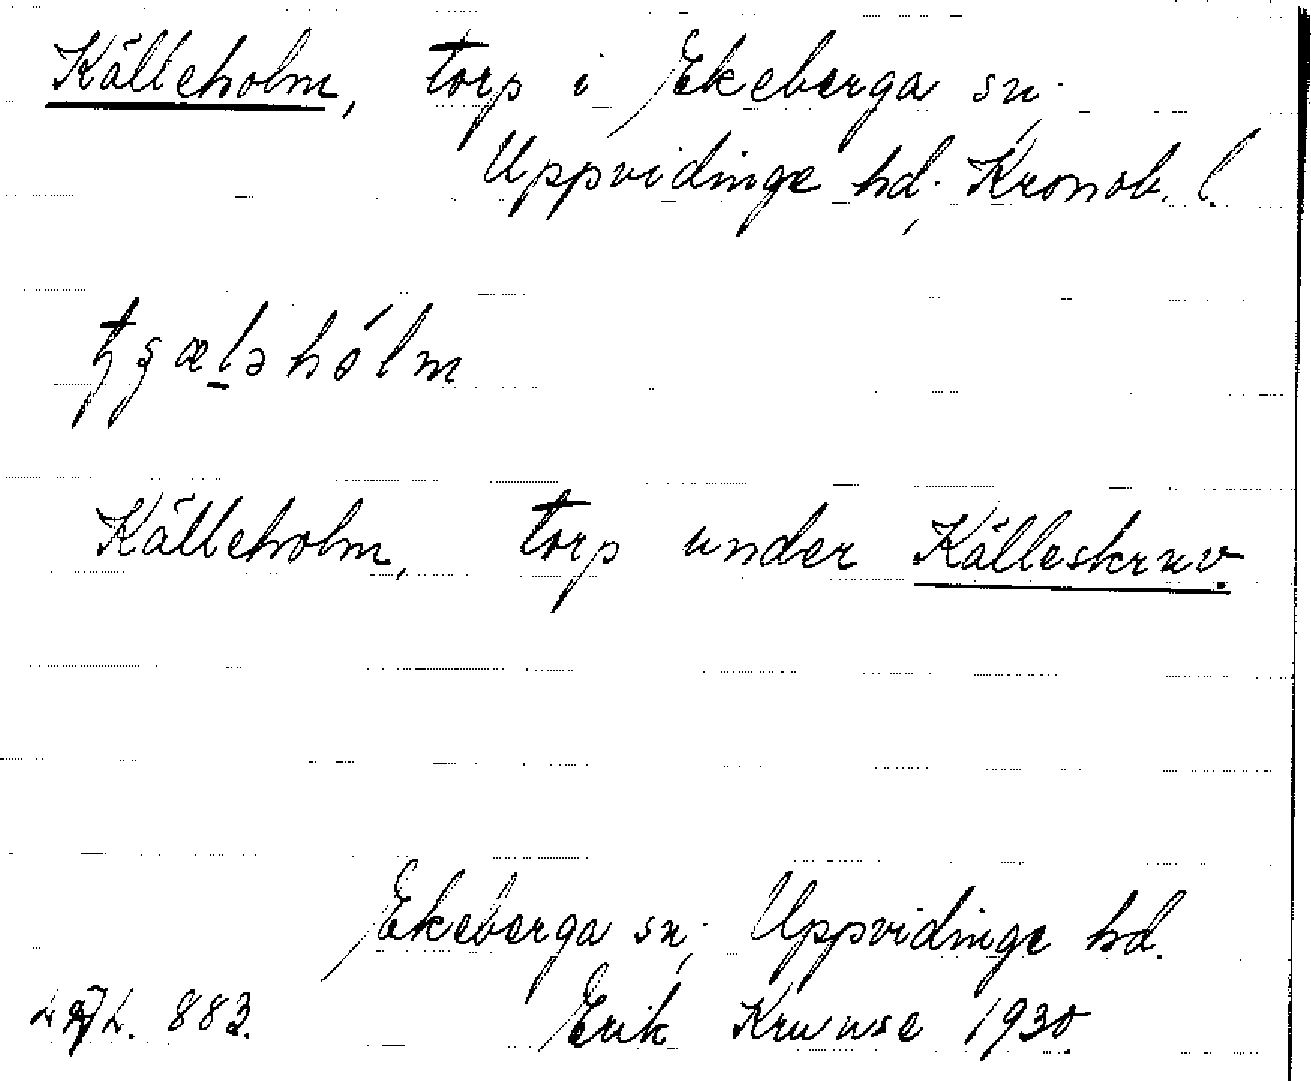 Källeholm, torp i Ekeberga sn.
Uppvidinge hd, Kronob. l.
Källeholm, torp under Källeskruv.
Ekeberga sn, Uppvidinge hd.
883. Erik Kruuse 1930